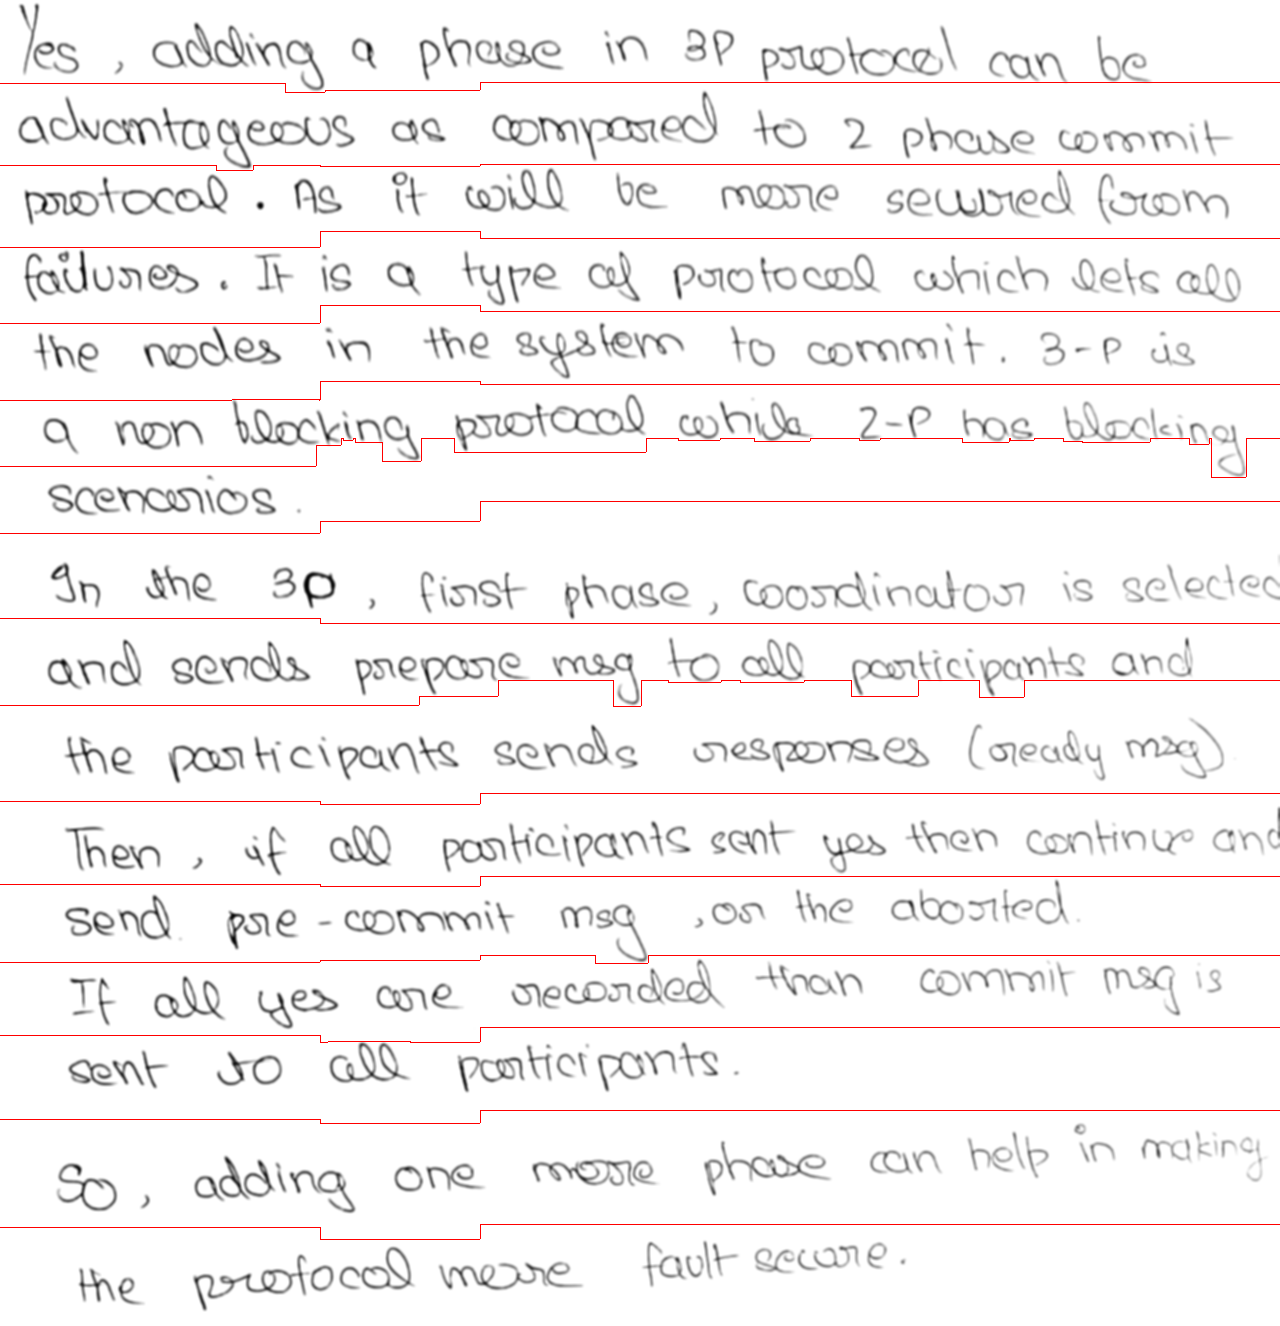 Yes, adding a phase in 3P protocol can be
advantageous as compared to 2 phase commit
protocol. As it will be more secured from
failures. It is a type of protocol which lets all
the nodes in the system to commit. 3-P is
a non blocking protocol while 2-P has blocking
scenarios.
In the 3P, first phase, coordinator is selected
and sends prepare msg to all participants and
the participants sends responses (ready msg)
Then, if all participants sent yes then continue and
send pre-commit msg, or the aborted.
If all yes are recorded than commit msg is
sent to all participants.
So, adding one more phase can help in making
the protocol more fault secure.